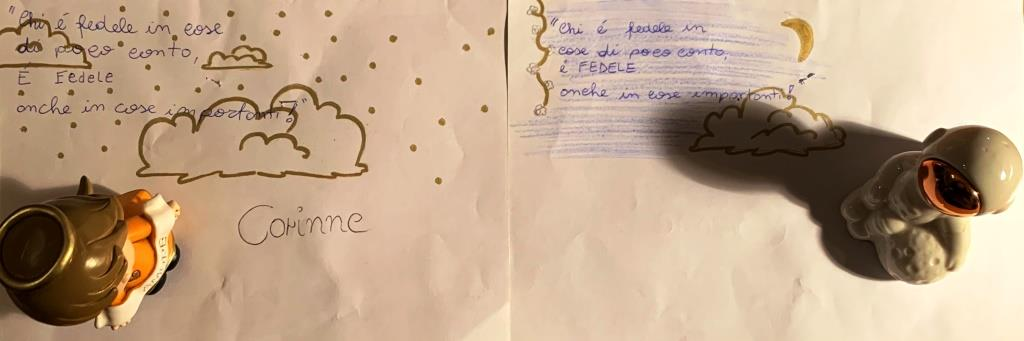 "Chi é fedele in cose
di poco conto,
É Fedele
anche in cose importanti!"
Corinne
"Chi é fedele in
cose di poco conto,
é FEDELE
anche in cose importanti!"